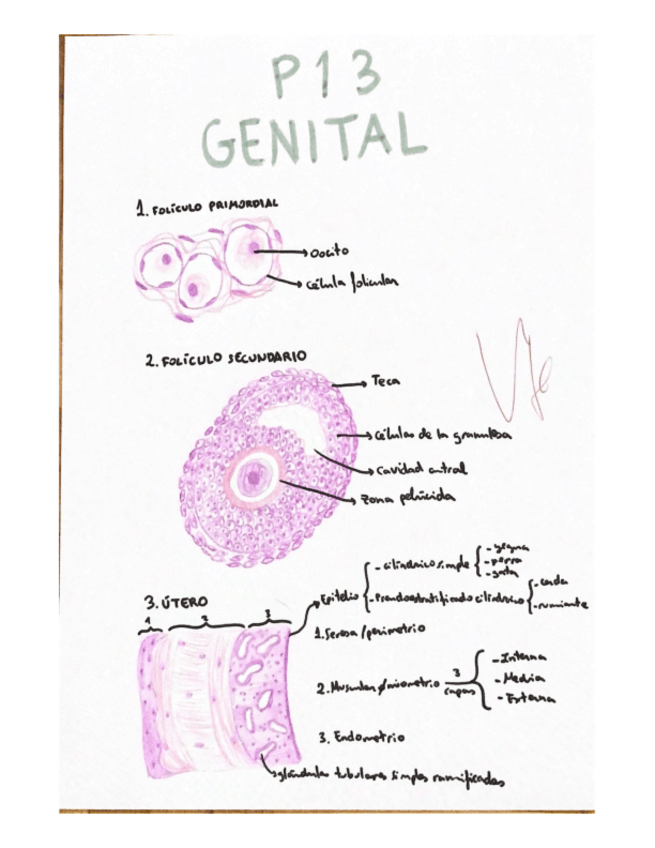 P13
GENITAL
1. FOLÍCULO PRIMORDIAL
oocito
célula folicular
2. FOLÍCULO SECUNDARIO
Teca
células de la granulosa
cavidad antral
zona pelúcida
3. ÚTERO
1 2 3
Epitelio
- cilíndrico simple
- yegua
- perra
- gata
- Pseudoestratificado cilíndrico
- cerda
- rumiante
1. Serosa/perimetrio
2. Muscular/miometrio 3 capas
- Interna
- Media
- Externa
3. Endometrio
glándulas tubulares simples ramificadas